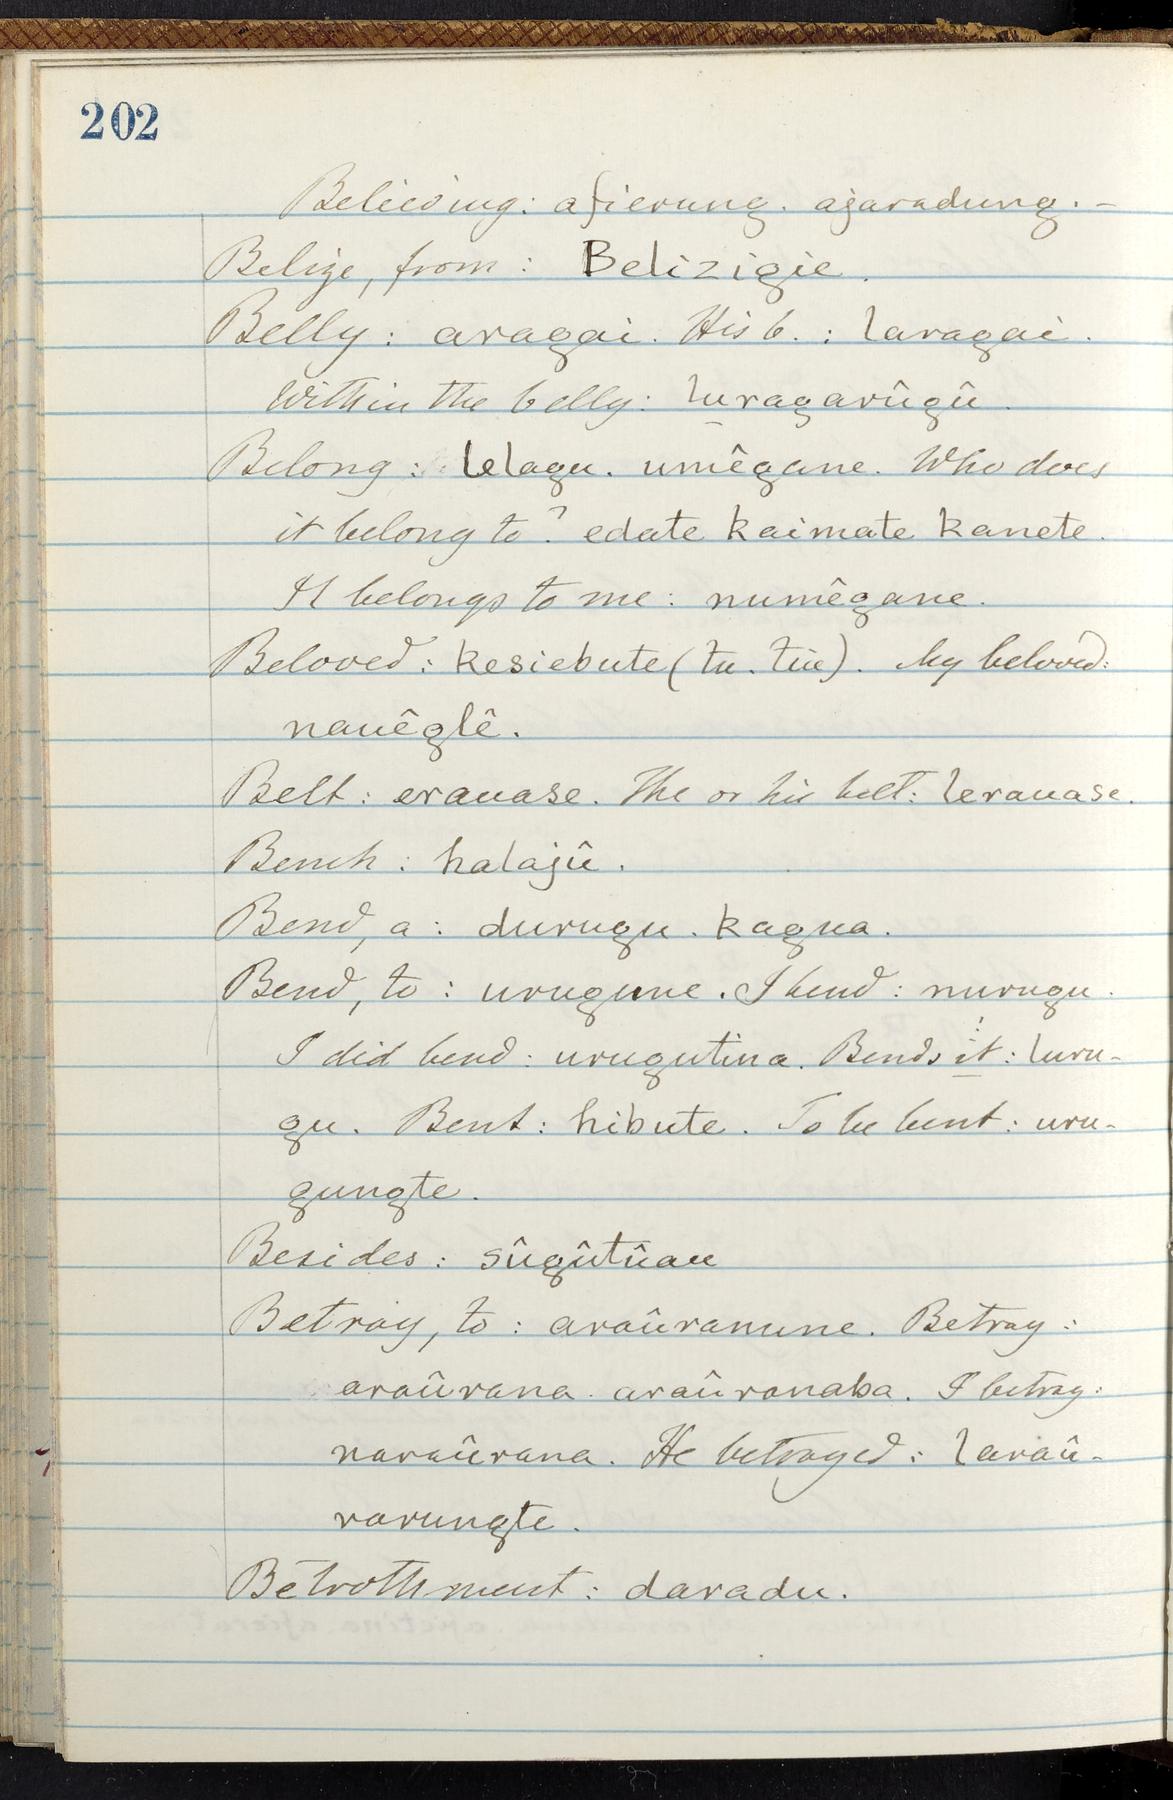 202
Believing: afierung. ajaradung. –
Belize, from: Belizigie.
Belly: aragai. His b.: laragai.
Within the belly: luragarûgû.
Belong: lelagu. umêgane. Who does
it belong to? edate kaimate kanete.
It belongs to me: numêgane.
Beloved: kesiebute (tu. tûe). My beloved:
nauêglê.
Belt: erauase. The or his belt: lerauase.
Bench: halajû.
Bend, a: durugu. kagua.
Bend, to: urugune. I bend: nurugu.
I did bend: urugutina. Bends it: luru-
gu. Bent: hibute. To be bent: uru-
gungte.
Besides: sûgûtûau
Betray, to: araûranune. Betray:
araûrana. araûranaba. I betray:
naraûrana. He betrayed: laraû-
rarungte.
Betrothment: daradu.